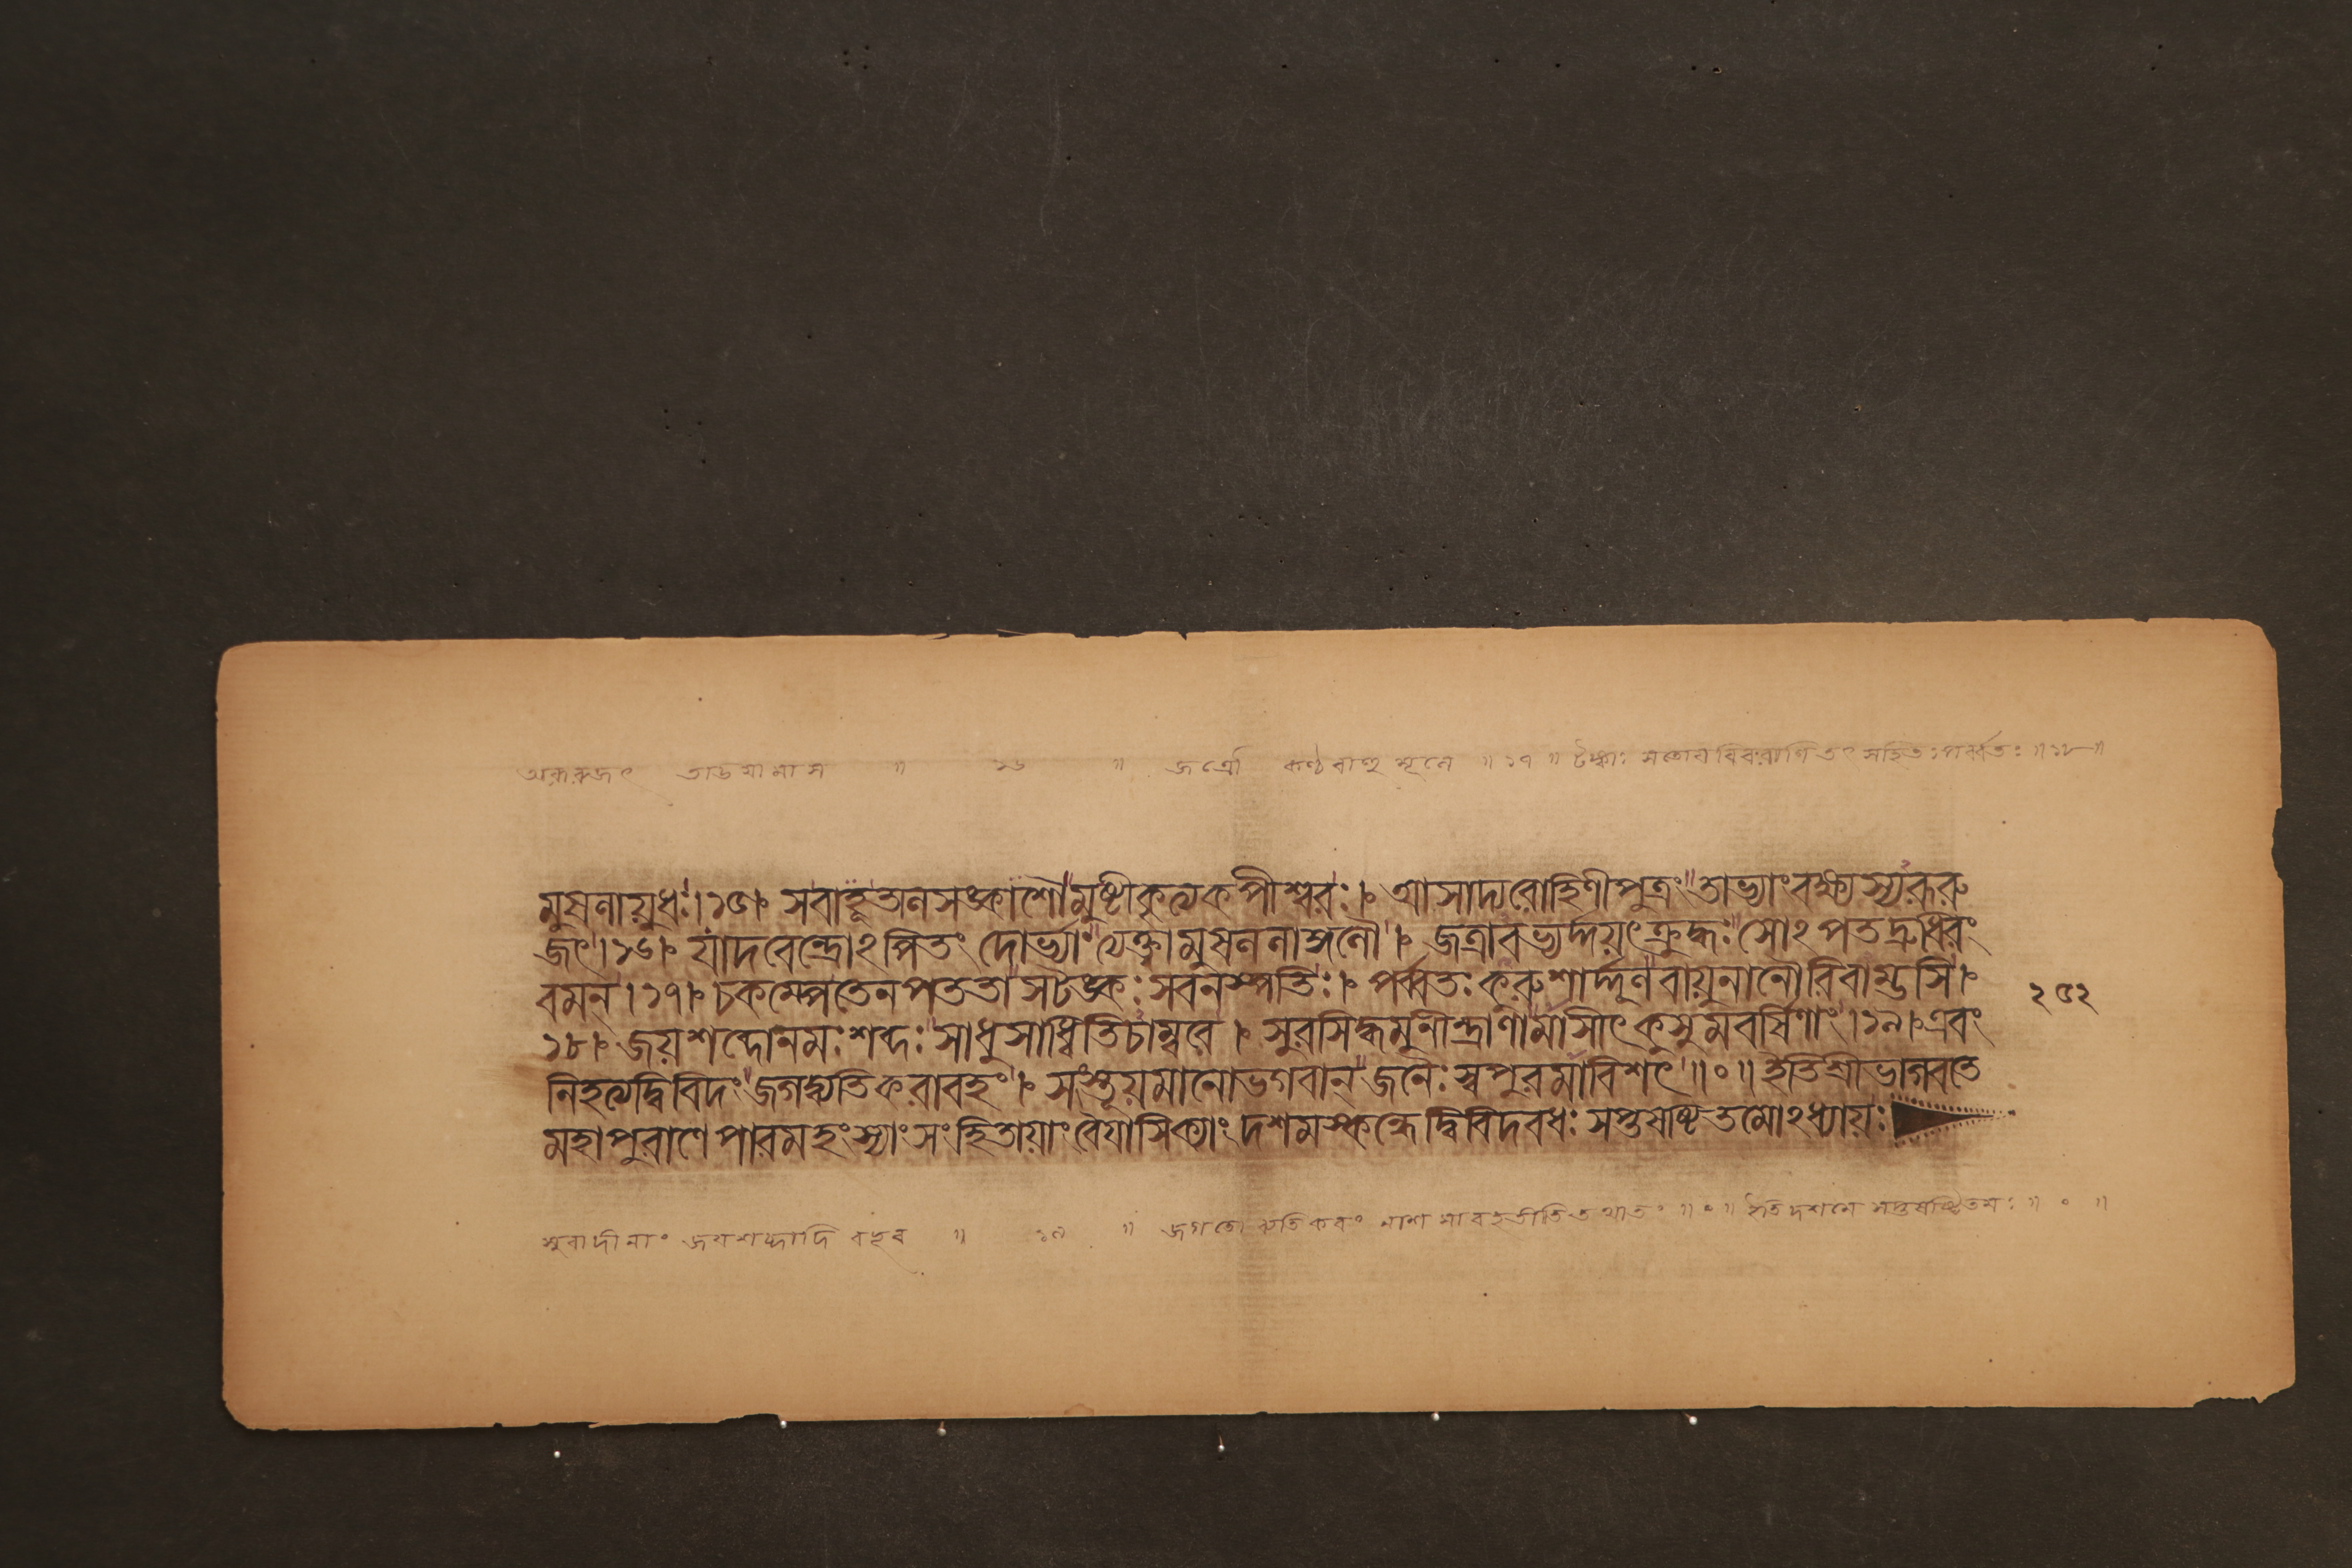 অরূরুজৎ তাডয়ামাস ॥ ১৬ ॥ জত্রৌ কণ্ঠবাহুমূলে ॥ ১৭ ॥ টঙ্কাঃ সতোয়বিবরাণি তৎসহিতঃ পর্ব্বতঃ ॥ ১৮ ॥
মুষলায়ুধঃ। ১৫। সবাহূতালসঙ্কাশৌমুষ্টীকৃত্যকপীশ্বরঃ। আসাদ্যরোহিণীপুত্রং তাভ্যাংবক্ষ্যস্যরূরু
জৎ। ১৬। যাদবেন্দ্রোঽপিতং দোর্ভ্যাংত্যক্ত্বামুষললাঙ্গলৌ। জত্রাবভ্যর্দ্দয়ৎক্রুদ্ধঃ সোঽপতদ্রুধিরং
বমন্। ১৭। চকম্পেতেনপততা সটঙ্কঃ সবনস্পতিঃ। পর্ব্বতঃ কুরুশার্দ্দূলবায়ুনানৌরিবাম্ভসি।
১৮। জয়শব্দোনমঃশব্দঃ সাধুসাধ্বিতিচাম্বরে। সুরসিদ্ধমুনীন্দ্রাণামাসীৎকুসুমবর্ষিণাং। ১৯। এবং
২৫২
নিহত্যদ্বিবিদং জগদ্ব্যতিকরাবহং। সংস্তূয়মানোভগবান্ জনৈঃ স্বপুরমাবিশৎ ॥ ০ ॥ ইতিশ্রীভাগবতে
মহাপুরাণে পারমহংস্যাং সংহিতায়াং বৈয়াসিক্যাং দশমস্কন্ধে দ্বিবিদবধঃ সপ্তষষ্টিতমোঽধ্যায়ঃ
সুরাদীনাং জয়শব্দাদি বহব ॥ ১৯ ॥ জগতো ব্যতিকরং নাশমাবহতীতি তথাতং ॥ ০ ॥ ইতি দশমে সপ্তষষ্টিতমঃ ॥ ০ ॥